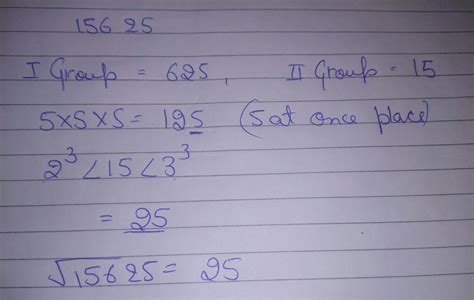 15625
I Group = 625, II Group = 15
5×5×5 = 125 (5 at once place)
2³ < 15 < 3³
= 25
√15625 = 25